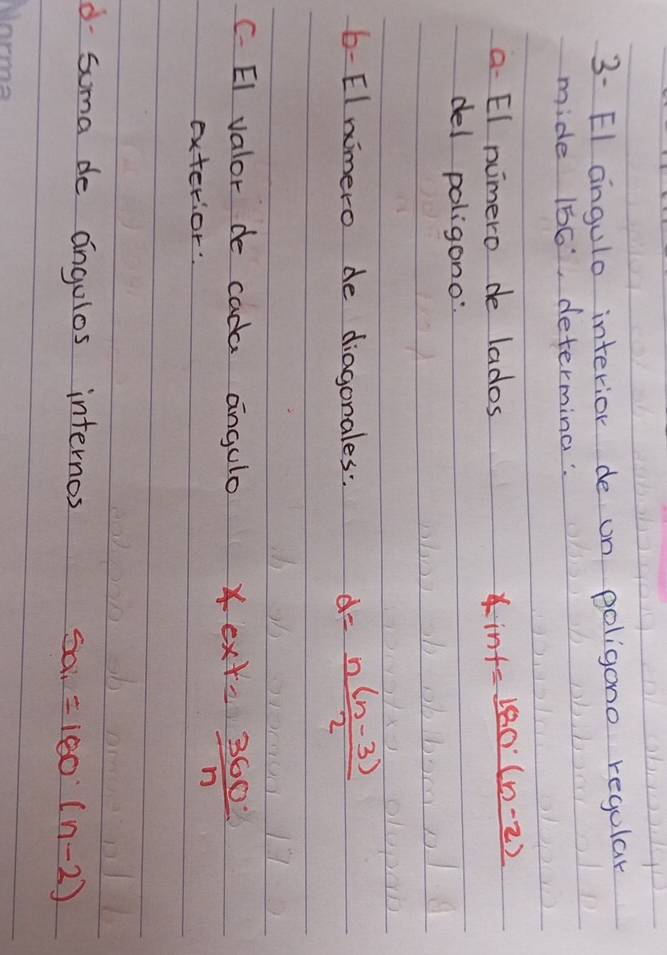 3- El ángulo interior de un polígono regular
mide 156°, determina:
a- El número de lados ∡ int = 180° (n-2)
del polígono:
b- El número de diagonales: d = n(n-3)
2
c- El valor de cada ángulo ∡ ext = 360°
exterior: n
d- Suma de ángulos internos Sai = 180° (n-2)
Norma